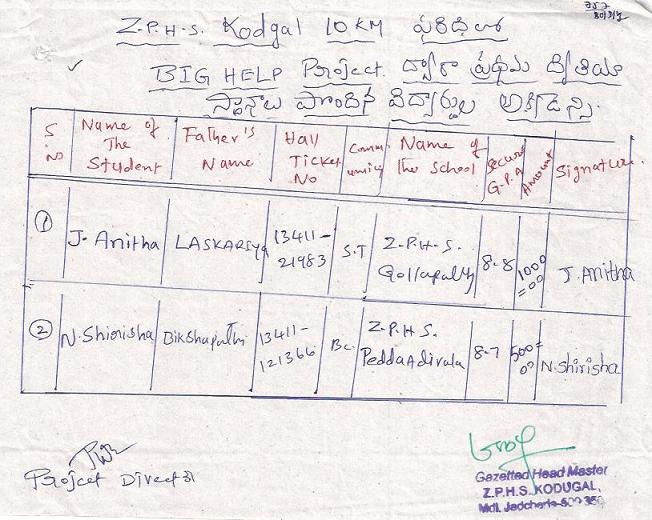 Z.P.H.S. Kodgal 10 KM పరిధిలో
BIG HELP Project ద్వారా ప్రథమ ద్వితియ
స్థానాలు పొందిన విద్యార్థుల
S NO Name of The Student Father's Name Hall Ticket No Community Name of the School Secured G.P.A Amount Signature
1 J. Anitha LASKARIYA 13411-21983 S.T Z.P.H.S. Gollapally 8.8 1000=00 J. Anitha
2 N. Shirisha Bikshapathi 13411-121366 Bc. Z.P.H.S. PeddaAdirala 8.7 500=00 N. Shirisha
Project Director
Gazetted Head Master
Z.P.H.S. KODUGAL,
Mdl. Jadcherla-509 350